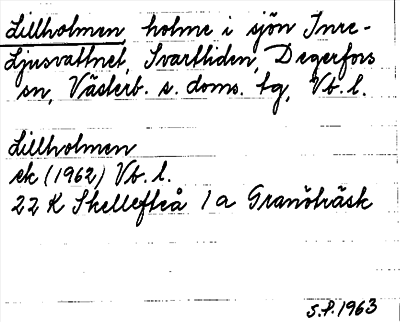 Lillholmen, holme i sjön Inre-
Ljusvattnet, Svartliden, Degerfors
sn, Västerb. s. doms. tg, Vb. l.
Lillholmen
ek (1962) Vb. l.
22 K Skellefteå 1a Granöträsk
S.P. 1963